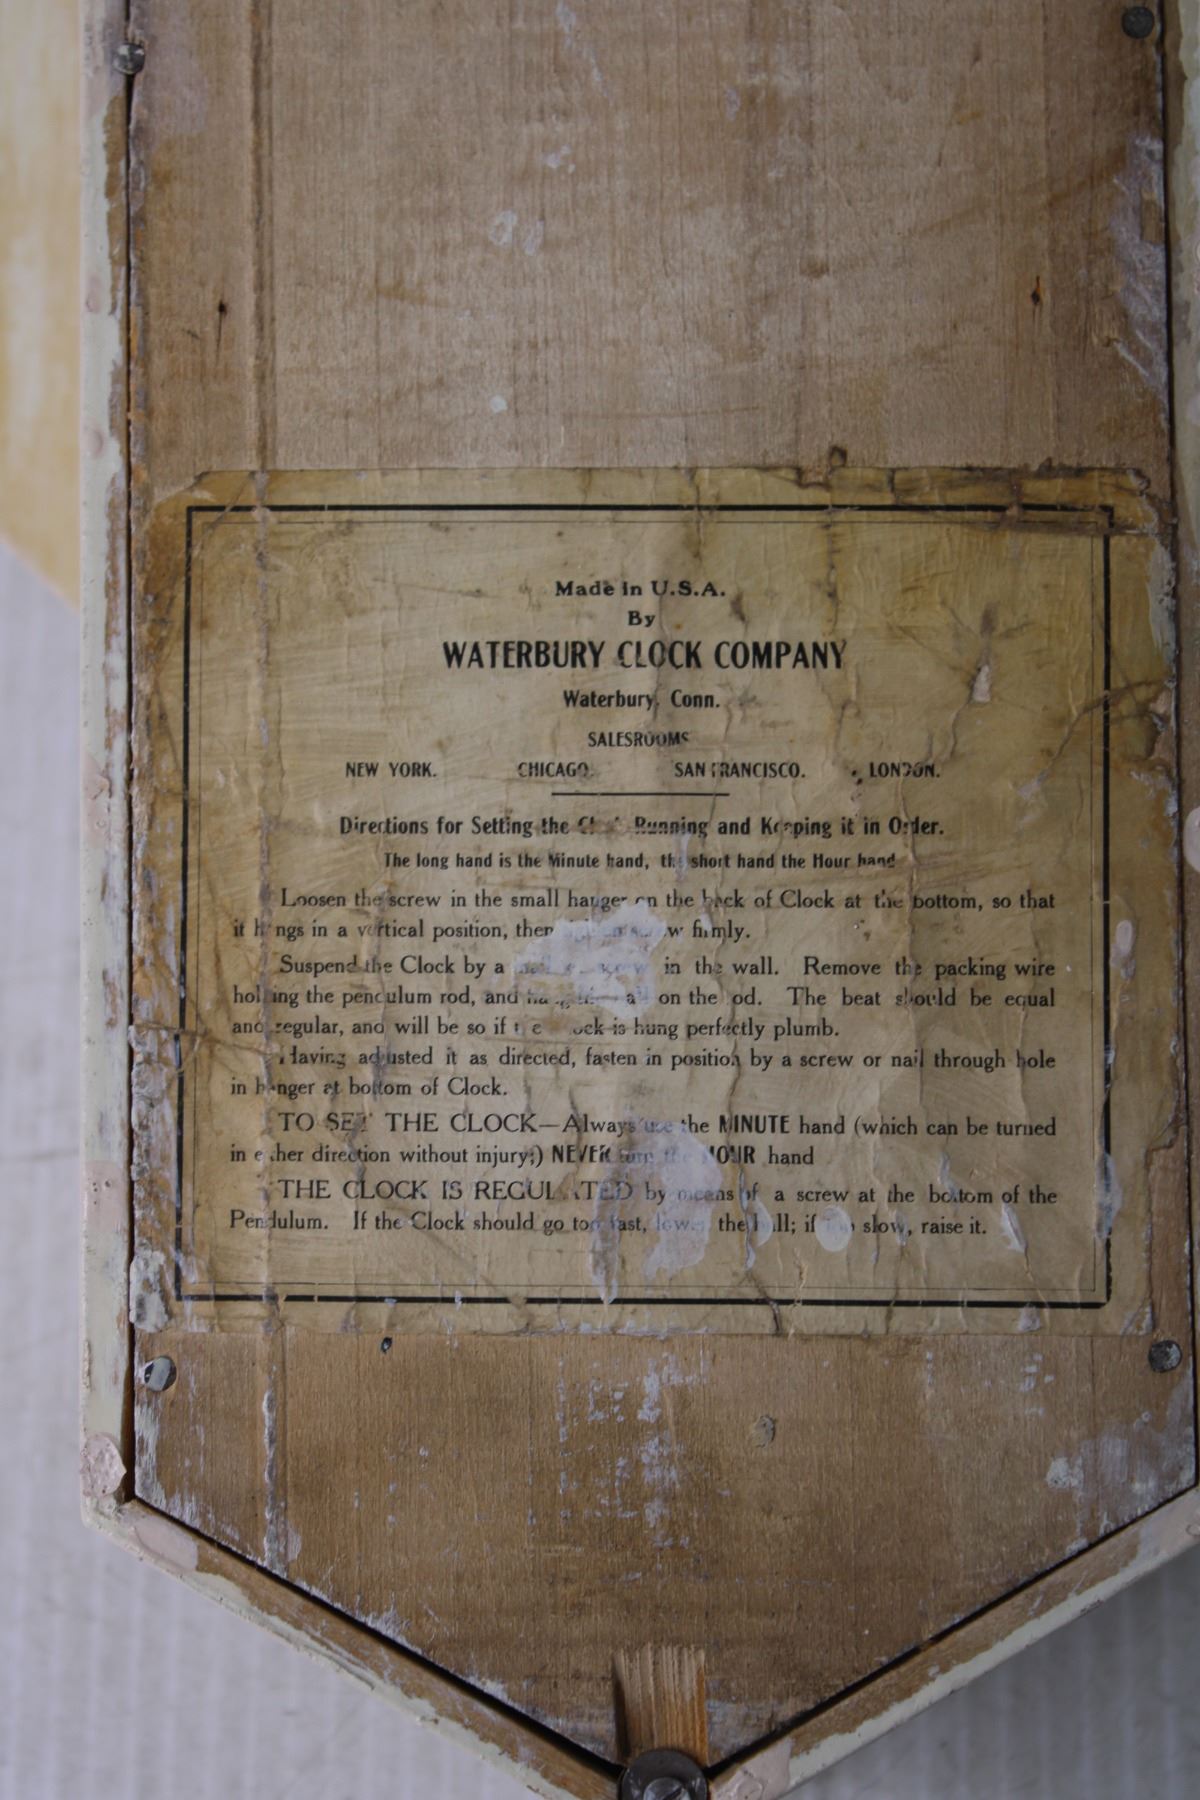 Made in U.S.A.
By
WATERBURY CLOCK COMPANY
Waterbury, Conn.
SALESROOMS
NEW YORK. CHICAGO. SAN FRANCISCO. LONDON.
Directions for Setting the Clock Running and Keeping it in Order.
The long hand is the Minute hand, the short hand the Hour hand
Loosen the screw in the small hanger on the back of Clock at the bottom, so that
it hangs in a vertical position, then firmly.
Suspend the Clock by a in the wall. Remove the packing wire
holding the pendulum rod, and on the rod. The beat should be equal
and regular, and will be so if the Clock is hung perfectly plumb.
Having adjusted it as directed, fasten in position by a screw or nail through hole
in hanger at bottom of Clock.
TO SET THE CLOCK—Always use the MINUTE hand (which can be turned
in either direction without injury;) NEVER turn the HOUR hand
THE CLOCK IS REGULATED by means of a screw at the bottom of the
Pendulum. If the Clock should go too fast, lower the ball; if too slow, raise it.